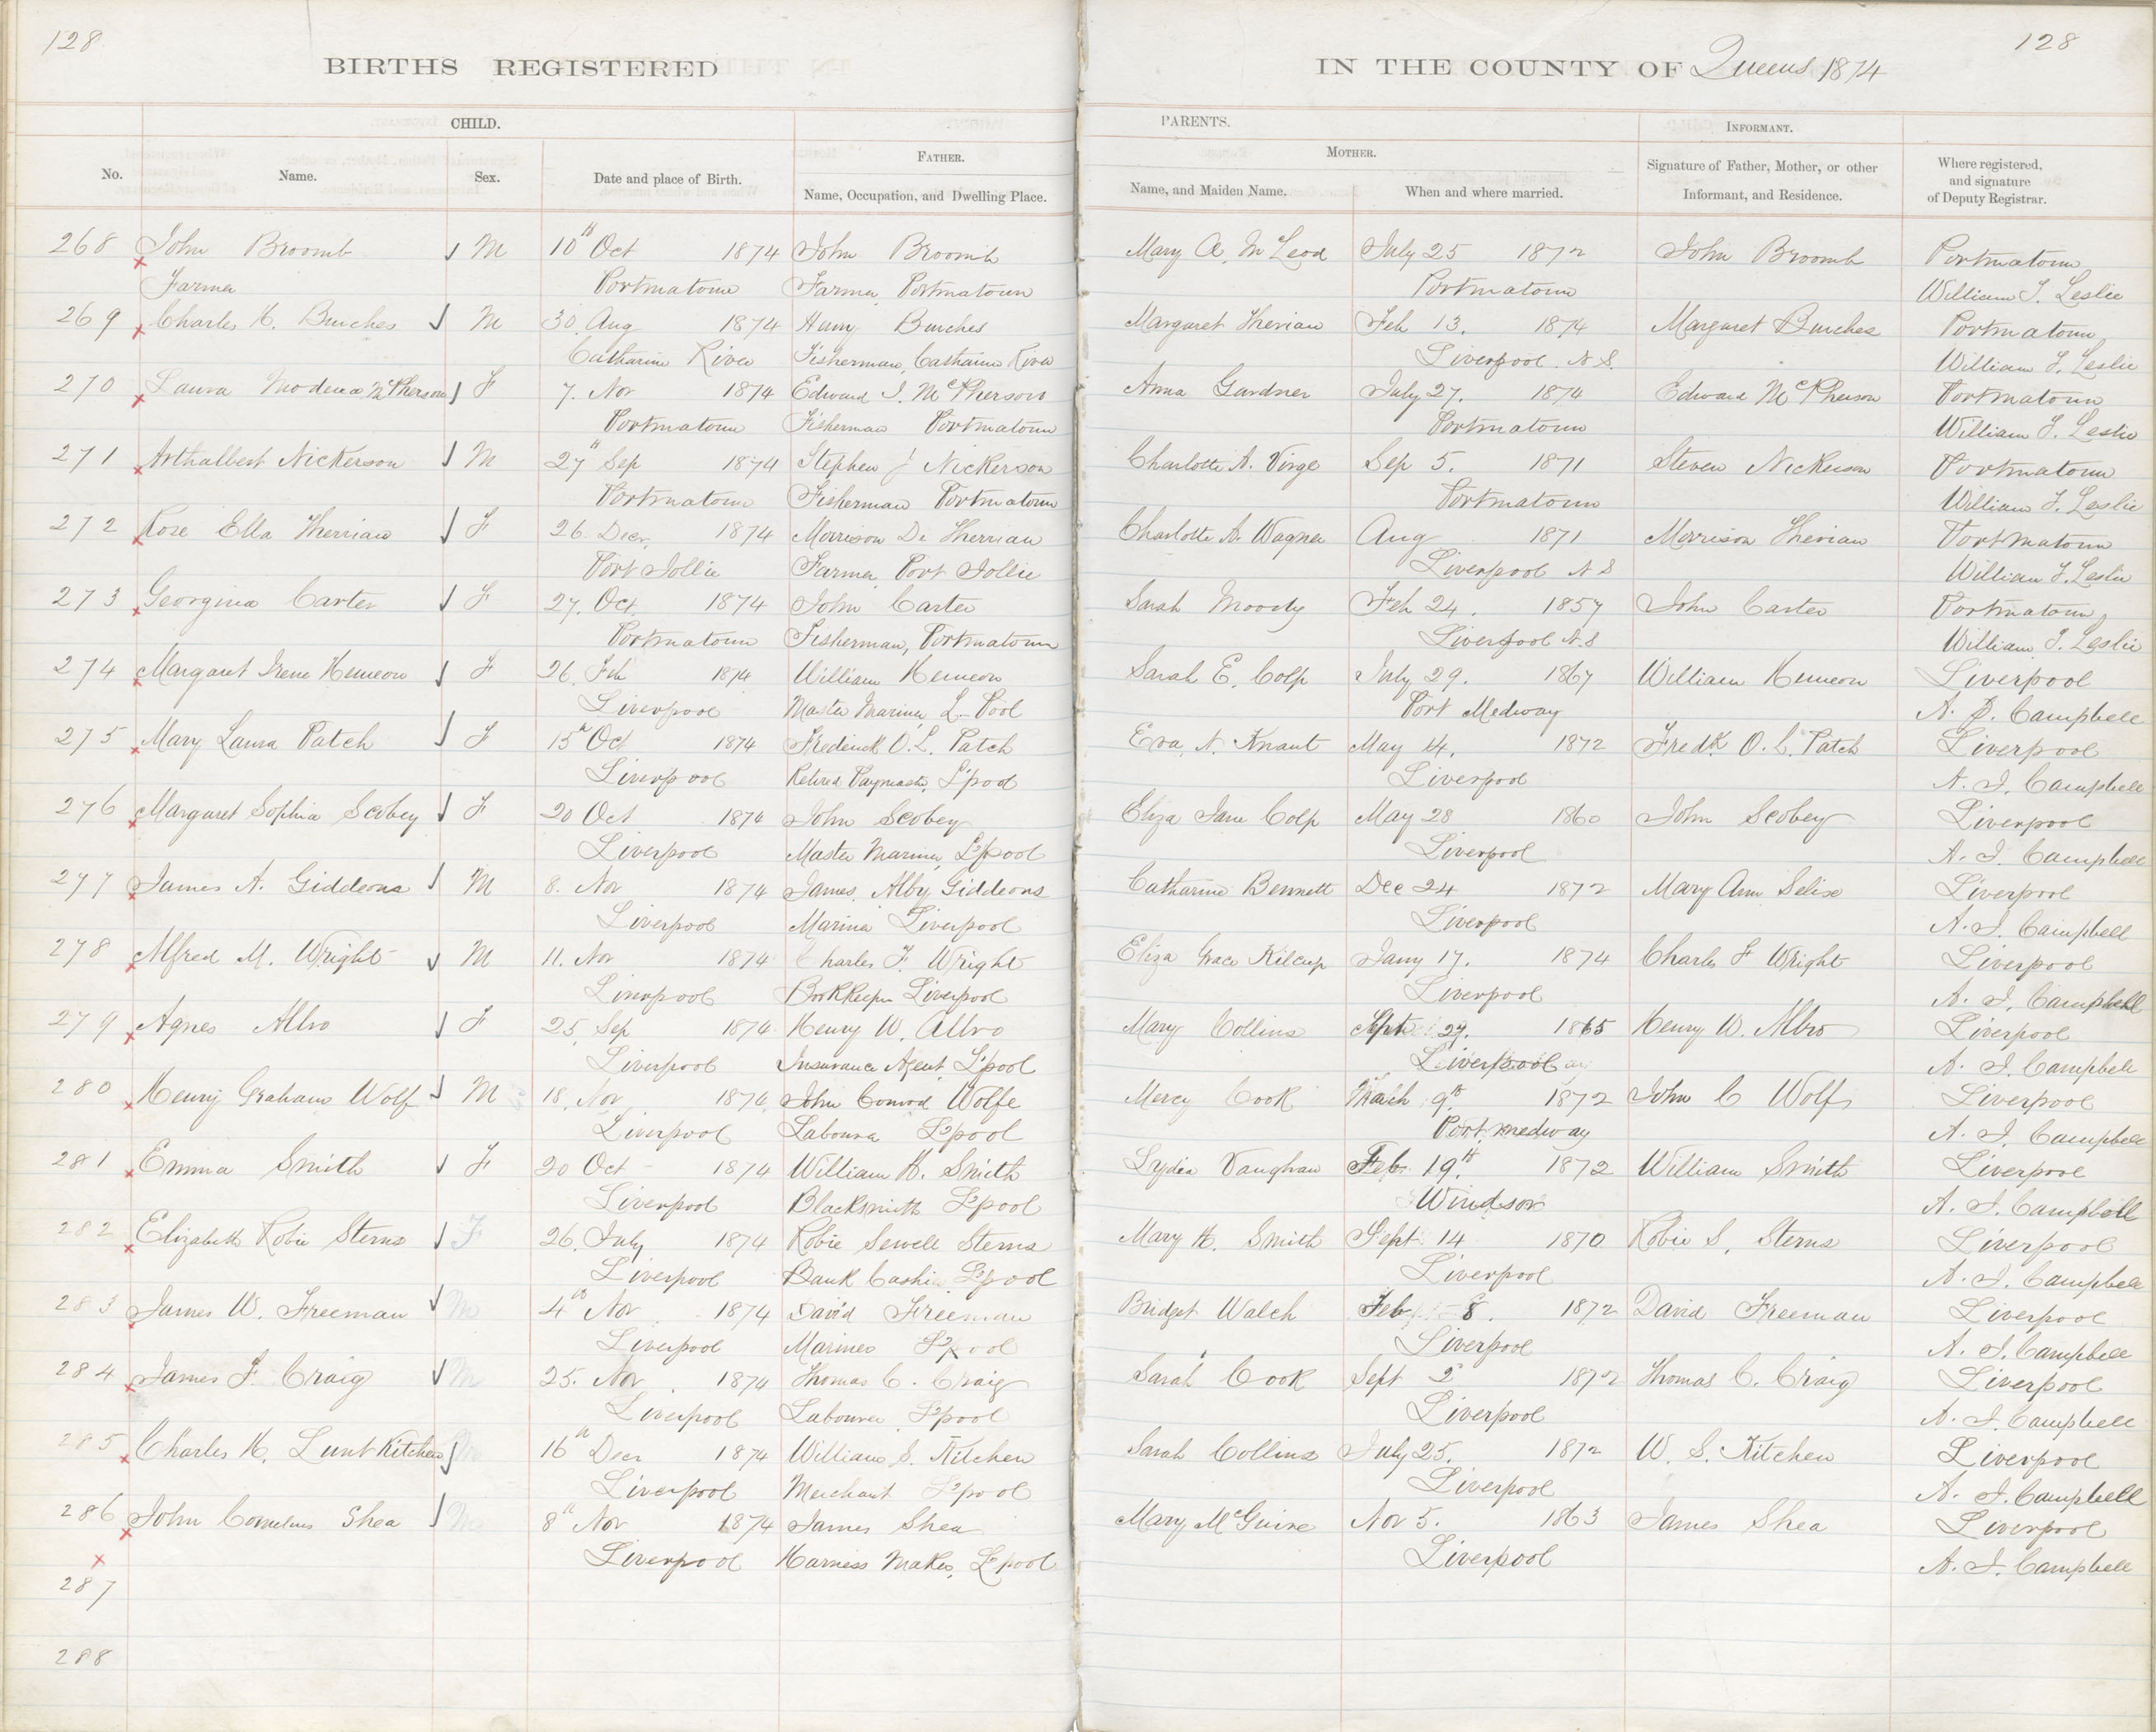 128
128
BIRTHS REGISTERED
IN THE COUNTY OF Queens 1874
CHILD.
PARENTS.
INFORMANT.
FATHER.
MOTHER.
No.
Name.
Sex.
Date and place of Birth.
Name, Occupation, and Dwelling Place.
Name, and Maiden Name.
When and where married.
Signature of Father, Mother, or other
Informant, and Residence.
Where registered,
and signature
of Deputy Registrar.
268 John Broomb M 10th Oct 1874 John Broomb Mary A. McLeod July 25 1872 John Broomb Portmatoun
Farmer Portmatoun Farmer, Portmatoun Portmatoun William F. Leslie
269 Charles H. Burches M 30. Aug 1874 Henry Burches Margaret Therian Feb 13. 1874 Margaret Burches Portmatoun
Catharine River Fisherman, Catharine River Liverpool N.S. William F. Leslie
270 Laura Modena McPherson F 7. Nov 1874 Edward I. McPherson Anna Gardner July 27. 1874 Edward McPherson Portmatoun
Portmatoun Fisherman Portmatoun Portmatoun William F. Leslie
271 Arthalbert Nickerson M 27" Sep 1874 Stephen J Nickerson Charlotte A. Virge Sep 5. 1871 Steven Nickerson Portmatoun
Portmatoun Fisherman Portmatoun Portmatoun William F. Leslie
272 Rose Ella Therrian F 26. Decr. 1874 Morrison De Therrian Charlotte A. Wagner Aug 1871 Morrison Therian Portmatoun
Port Jollie Farmer Port Jollie Liverpool N S William F. Leslie
273 Georgina Carter F 27. Oct. 1874 John Carter Sarah Moody Feb 24. 1857 John Carter Portmatoun
Portmatoun Fisherman, Portmatoun Liverpool N.S William F. Leslie
274 Margaret Irene Kemeon F 26. Feb 1874 William Kemeon Sarah E. Colp July 29. 1867 William Kemeon Liverpool
Liverpool Master Mariner, L-Pool Port Medway A. J. Campbell
275 Mary Laura Patch F 15th Oct 1874 Frederick O. L. Patch Eva. N. Knaut May 14. 1872 Fredk O. L. Patch Liverpool
Liverpool Retired Paymaster, L'pool Liverpool A. J. Campbell
276 Margaret Sophia Scobey F 20 Oct 1874 John Scobey Eliza Jane Colp May 28 1860 John Scobey Liverpool
Liverpool Master Mariner, L'pool Liverpool A. J. Campbell
277 James A. Giddeons M 8. Nov 1874 James Alby Giddeons Catharine Bennett Dec 24 1872 Mary Ann Selix Liverpool
Liverpool Mariner Liverpool Liverpool A. J. Campbell
278 Alfred M. Wright M 11. Nov 1874 Charles F. Wright Eliza Grace Kilcup Jany 17. 1874 Charles F Wright Liverpool
Liverpool BookKeeper Liverpool Liverpool A. J. Campbell
279 Agnes Albro F 25. Sep 1874 Henry W. Albro Mary Collins Sept 27. 1865 Henry W. Albro Liverpool
Liverpool Insurance Agent, L'pool Liverpool A. J. Campbell
280 Henry Graham Wolf M 18. Nov 1874 John Conrod Wolfe Mercy Cook March 9th 1872 John C Wolf Liverpool
Liverpool Labourer L'pool Port medway A. J. Campbell
281 Emma Smith F 20 Oct 1874 William H. Smith Lydia Vaughan Feb 19th 1872 William Smith Liverpool
Liverpool Blacksmith L'pool Windsor A. J. Campbell
282 Elizabeth Robie Sterns F 26. July 1874 Robie Sewell Sterns Mary H. Smith Sept 14 1870 Robie S. Sterns Liverpool
Liverpool Bank Cashier L'pool Liverpool A. J. Campbell
283 James W. Freeman M 4th Nov 1874 David Freeman Bridget Walch Feb 8. 1872 David Freeman Liverpool
Liverpool Mariner L'pool Liverpool A. J. Campbell
284 James F. Craig M 25. Nov. 1874 Thomas C. Craig Sarah Cook Sept 2 1872 Thomas C. Craig Liverpool
Liverpool Labourer L'pool Liverpool A. J. Campbell
285 Charles H. Lunt Kitchen M 16th Decr 1874 William S. Kitchen Sarah Collins July 25. 1872 W. S. Kitchen Liverpool
Liverpool Merchant L'pool Liverpool A. J. Campbell
286 John Cornelius Shea M 8th Nov 1874 James Shea Mary McGuire Nov 5. 1863 James Shea Liverpool
Liverpool Harness Maker, L'pool Liverpool A. J. Campbell
287
288